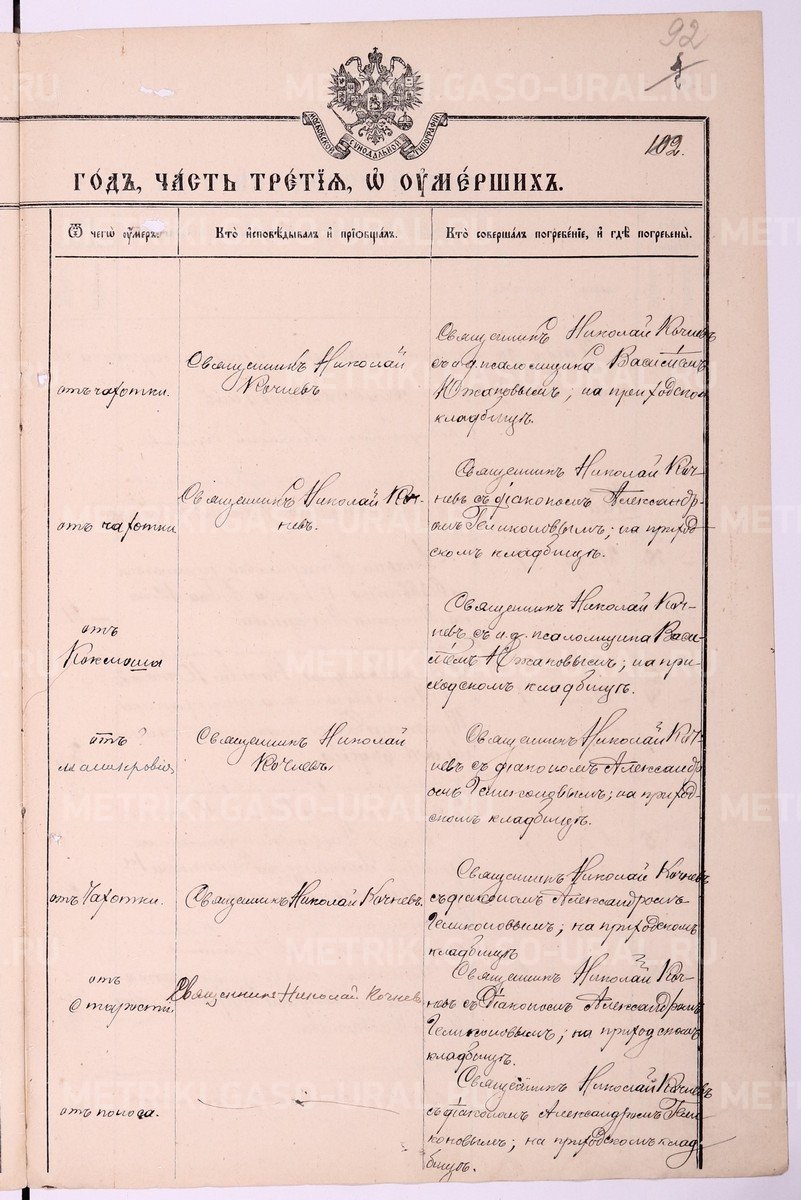 92
102.
МОСКОВСКОЙ СѴНОДАЛЬНОЙ ТИПОГРАФІИ
METRIKI.GASO-URAL.RU
ГОДЪ, ЧАСТЬ ТРЕТІЯ, Ѡ ОУМЕРШИХЪ.
Ѿ чегѡ оумеръ
Кто исповѣдывалъ и прїобщалъ.
Кто совершалъ погребенїе, и гдѣ погребены.
отъ чахотки.
Священникъ Николай
Кочневъ
Священникъ Николай Кочневъ
съ и.д. псаломщика Василіемъ
Южаковымъ; на приходском
кладбищѣ.
отъ чахотки
Священникъ Николай Коч-
невъ.
Священникъ Николай Коч-
невъ съ діакономъ Александр-
омъ Геликоновымъ; на приход-
скомъ кладбищѣ.
отъ
Коклюша
Священникъ Николай Коч-
невъ съ и.д. псаломщика Васи-
ліемъ Южаковымъ; на при-
ходскомъ кладбищѣ.
отъ
малокровія
Священникъ Николай
Кочневъ
Священникъ Николай Коч-
невъ съ діакономъ Александр
омъ Геликоновымъ; на приход-
скомъ кладбищѣ.
отъ Чахотки.
Священникъ Николай Кочневъ.
Священникъ Николай Кочневъ
съ діакономъ Александромъ
Геликоновымъ; на приходскомъ
кладбищѣ
отъ
Старости
Священникъ Николай Кочневъ
Священникъ Николай Коч-
невъ съ Діакономъ Александромъ
Геликоновымъ; на приходскомъ
кладбищѣ.
отъ поноса.
Священникъ Николай Кочневъ
съ діакономъ Александромъ Гели
коновымъ; на приходскомъ клад-
бищѣ.